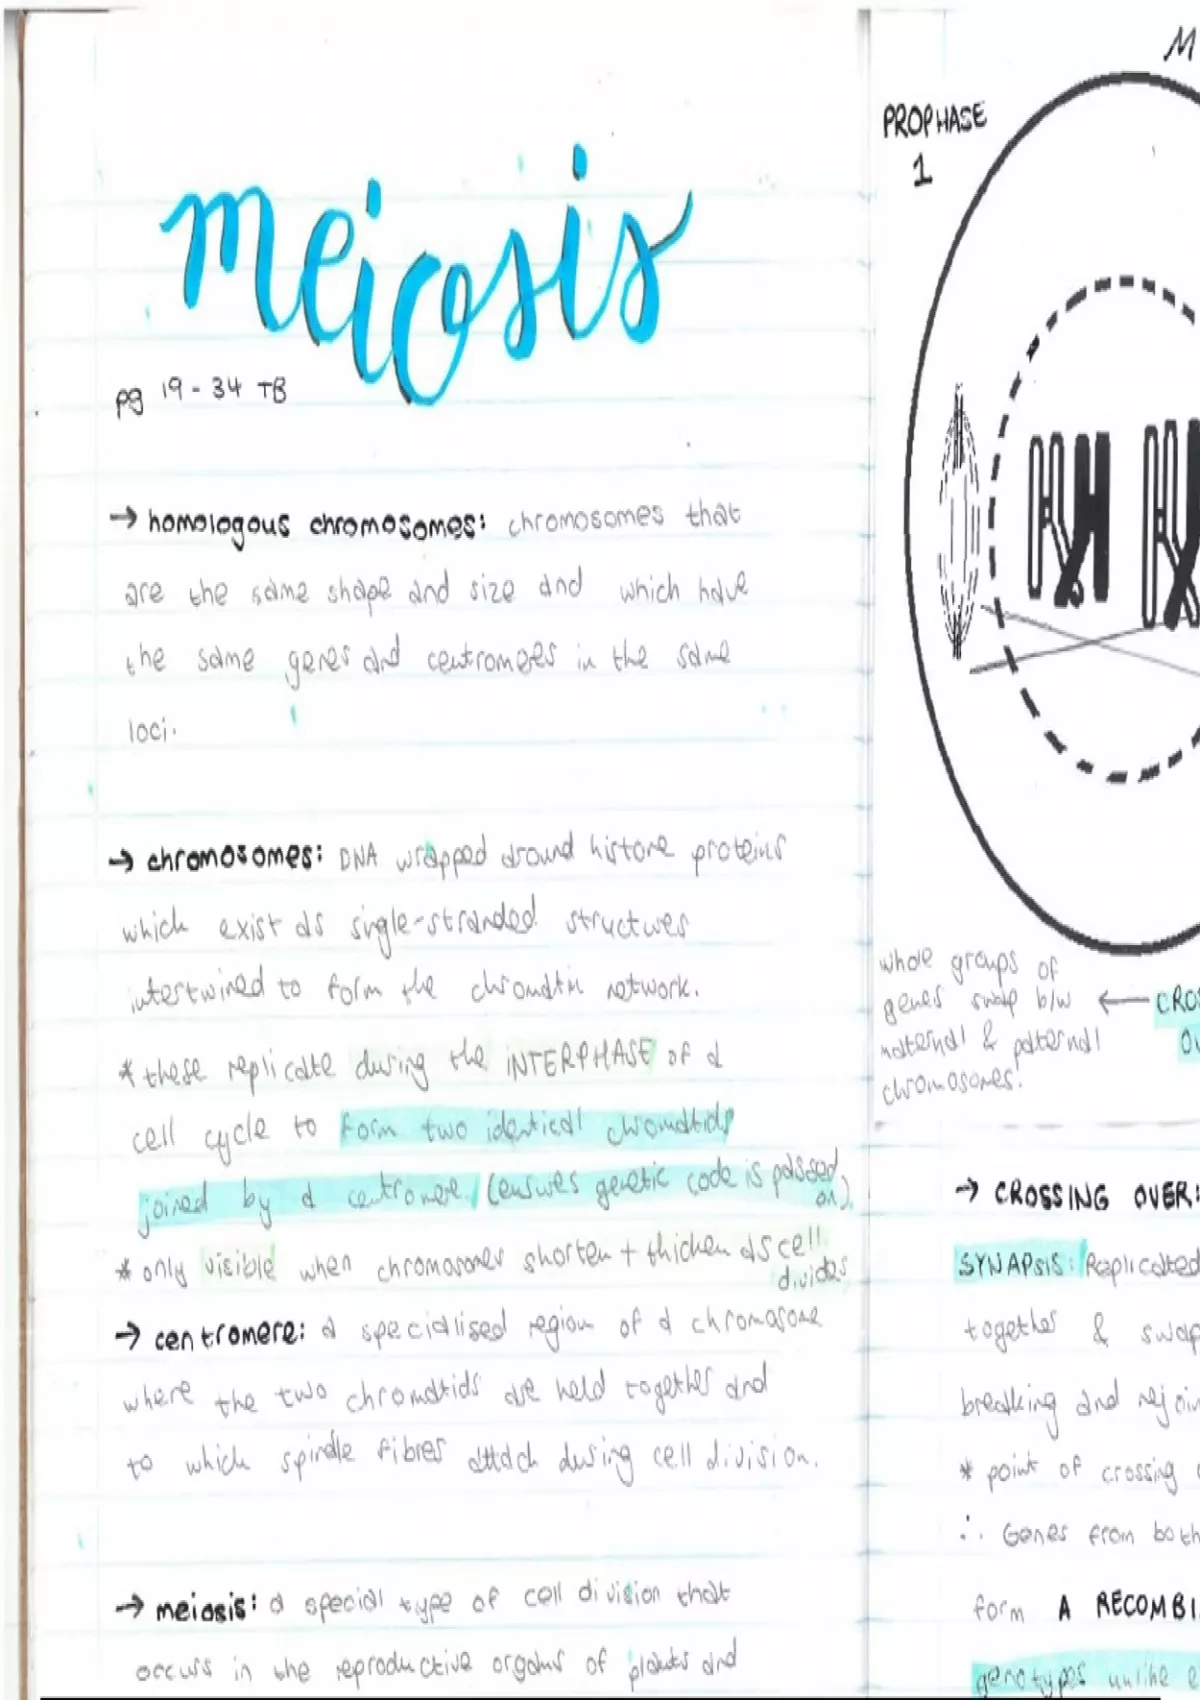 meiosis
pg 19 - 34 TB
→ homologous chromosomes: chromosomes that
are the same shape and size and which have
the same genes and centromeres in the same
loci.
→ chromosomes: DNA wrapped around histone proteins
which exist as single-stranded structures
intertwined to form the chromatin network.
* these replicate during the INTERPHASE of a
cell cycle to form two identical chromatids
joined by a centromere. (ensures genetic code is passed
on).
* only visible when chromosomes shorten + thicken as cell
divides
→ centromere: a specialised region of a chromosome
where the two chromatids are held together and
to which spindle fibres attach during cell division.
→ meiosis: a special type of cell division that
occurs in the reproductive organs of plants and
M
PROPHASE
1
whole groups of
genes swap b/w ← CROS
maternal & paternal
chromosomes.
→ CROSSING OVER:
SYNAPSIS: Replicated
together & swap
breaking and rejoin
* point of crossing
∴ Genes from both
form A RECOMBI
genotypes unlike e